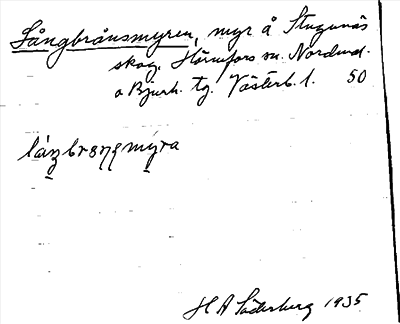 Långbrånsmyren, myr å Stugunäs
skog, Hörnefors sn. Nordmal.
o Bjurh. tg. Västerb. l. 50
H A Söderberg 1935